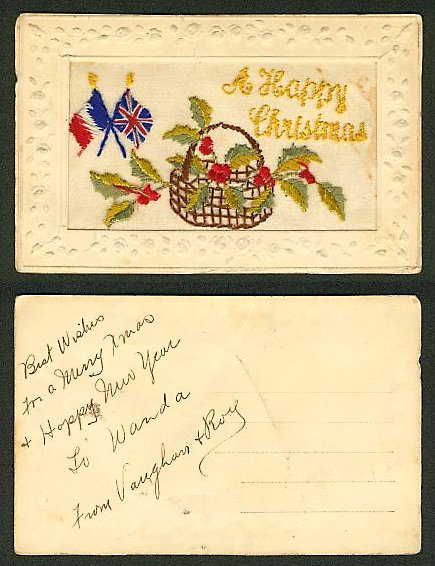 A Happy
Christmas
Best Wishes
for a Merry Xmas
+ Happy New Year
To Wanda
From Vaughan + Roy